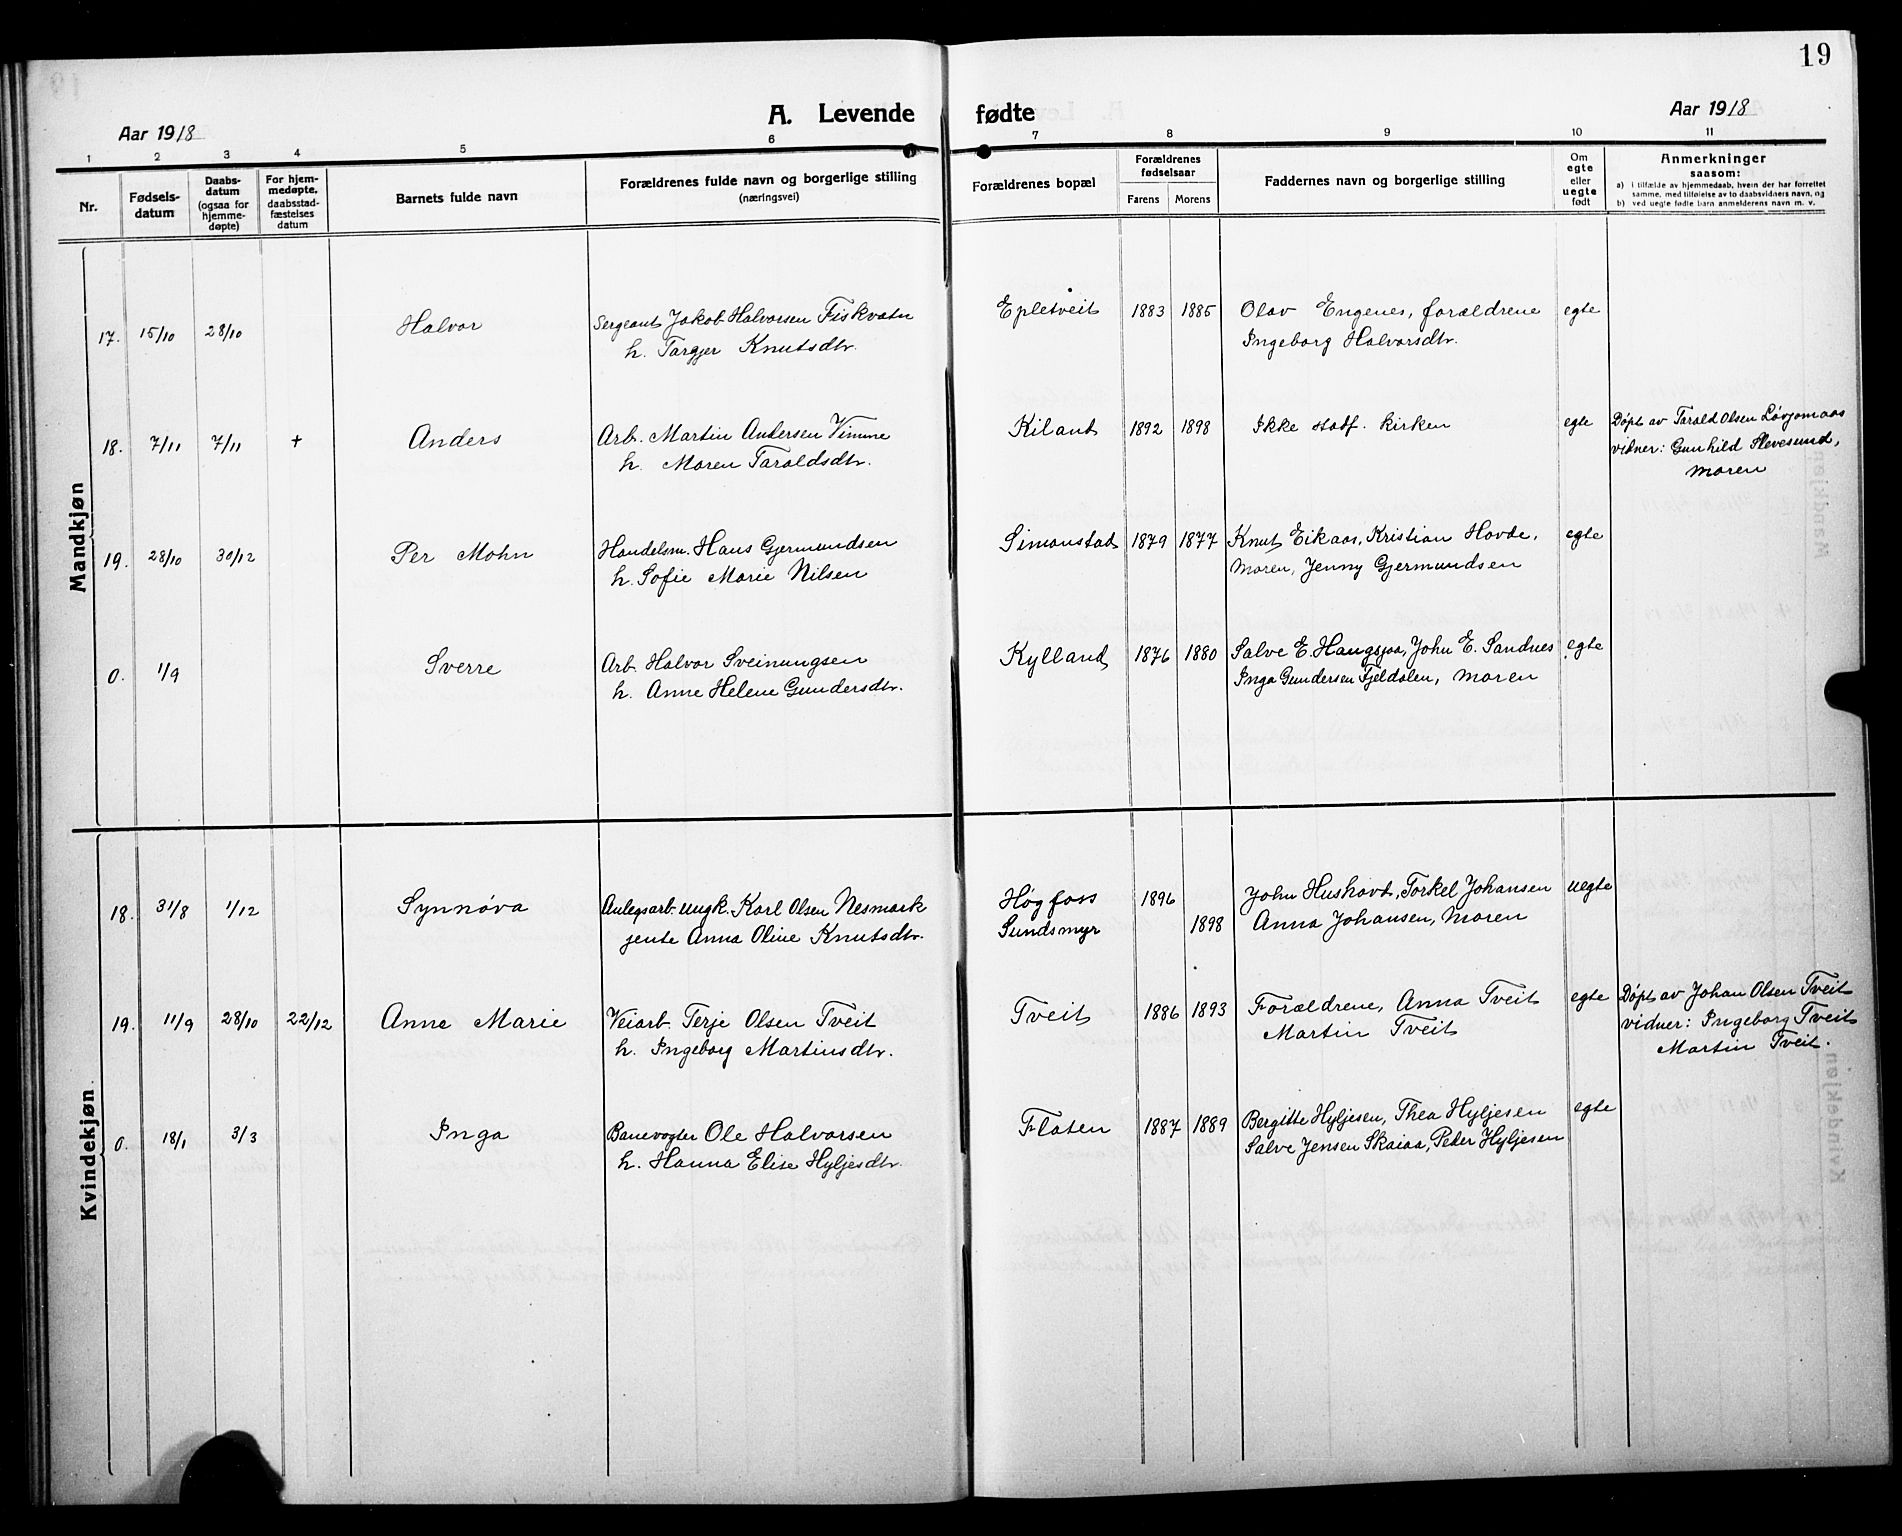 19
A. Levende fødte
Aar 1918
Aar 1918
1 2 3 4 5 6 7 8 9 10 11
Nr.
Fødsels-
datum
Daabs-
datum
(ogsaa for
hjemme-
døpte)
For hjem-
medøpte,
daabsstad-
fæstelses
datum
Barnets fulde navn
Forældrenes fulde navn og borgerlige stilling
(næringsvei)
Forældrenes bopæl
Forældrenes
fødselsaar
Farens Morens
Faddernes navn og borgerlige stilling
Om
egte
eller
uegte
født
Anmerkninger
saasom:
a) i tilfælde av hjemmedaab, hvem der har forrettet
samme, med tilføielse av to daabsvidners navn, og
b) ved uegte fødte barn anmelderens navn m. v.
Mandkjøn
17. 15/10 28/10 Halvor Sergeant Jakob Halvorsen Fiskvatn Epletveit 1883 1885 Olav Engenes, forældrene egte
h. Targjer Knutsdtr. Ingeborg Halvorsdtr.
18. 7/11 7/11 + Anders Arb. Martin Andersen Vimme Kiland 1892 1898 Ikke stadf. kirken egte Døpt av Tarald Olsen Løvjomaas
h. Maren Taraldsdtr. vidner: Gunhild Slevesund,
moren
19. 28/10 30/12 Per Mohn Handelsm. Hans Gjermundsen Simonstad 1879 1877 Knut Eikaas, Kristian Hovde, egte
h. Sofie Marie Nilsen moren, Jenny Gjermundsen
0. 1/9 Sverre Arb. Halvor Sveinungsen Kylland 1876 1880 Salve E. Haugsjaa, John E. Sandnes egte
h. Anne Helene Gundersdtr. Inga Gundersen Fjeldalen, moren
Kvindekjøn
18. 31/8 1/12 Synnøva Anlegsarb. ungk. Karl Olsen Nesmark Høgfoss 1896 John Hushovd, Torkel Johansen uegte
jente Anna Oline Knutsdtr. Sundsmyr 1898 Anna Johansen, moren
19. 11/9 28/10 22/12 Anne Marie Veiarb. Terje Olsen Tveit Tveit 1886 1893 Forældrene, Anna Tveit egte Døpt av Johan Olsen Tveit
h. Ingeborg Martinsdtr. Martin Tveit vidner: Ingeborg Tveit
Martin Tveit.
0. 18/1 3/3 Inga Banevogter Ole Halvorsen Flaten 1887 1889 Bergitte Hyljesen, Thea Hyljesen egte
h. Hanna Elise Hyljesdtr. Salve Jensen Skaiaa, Peder Hyljesen